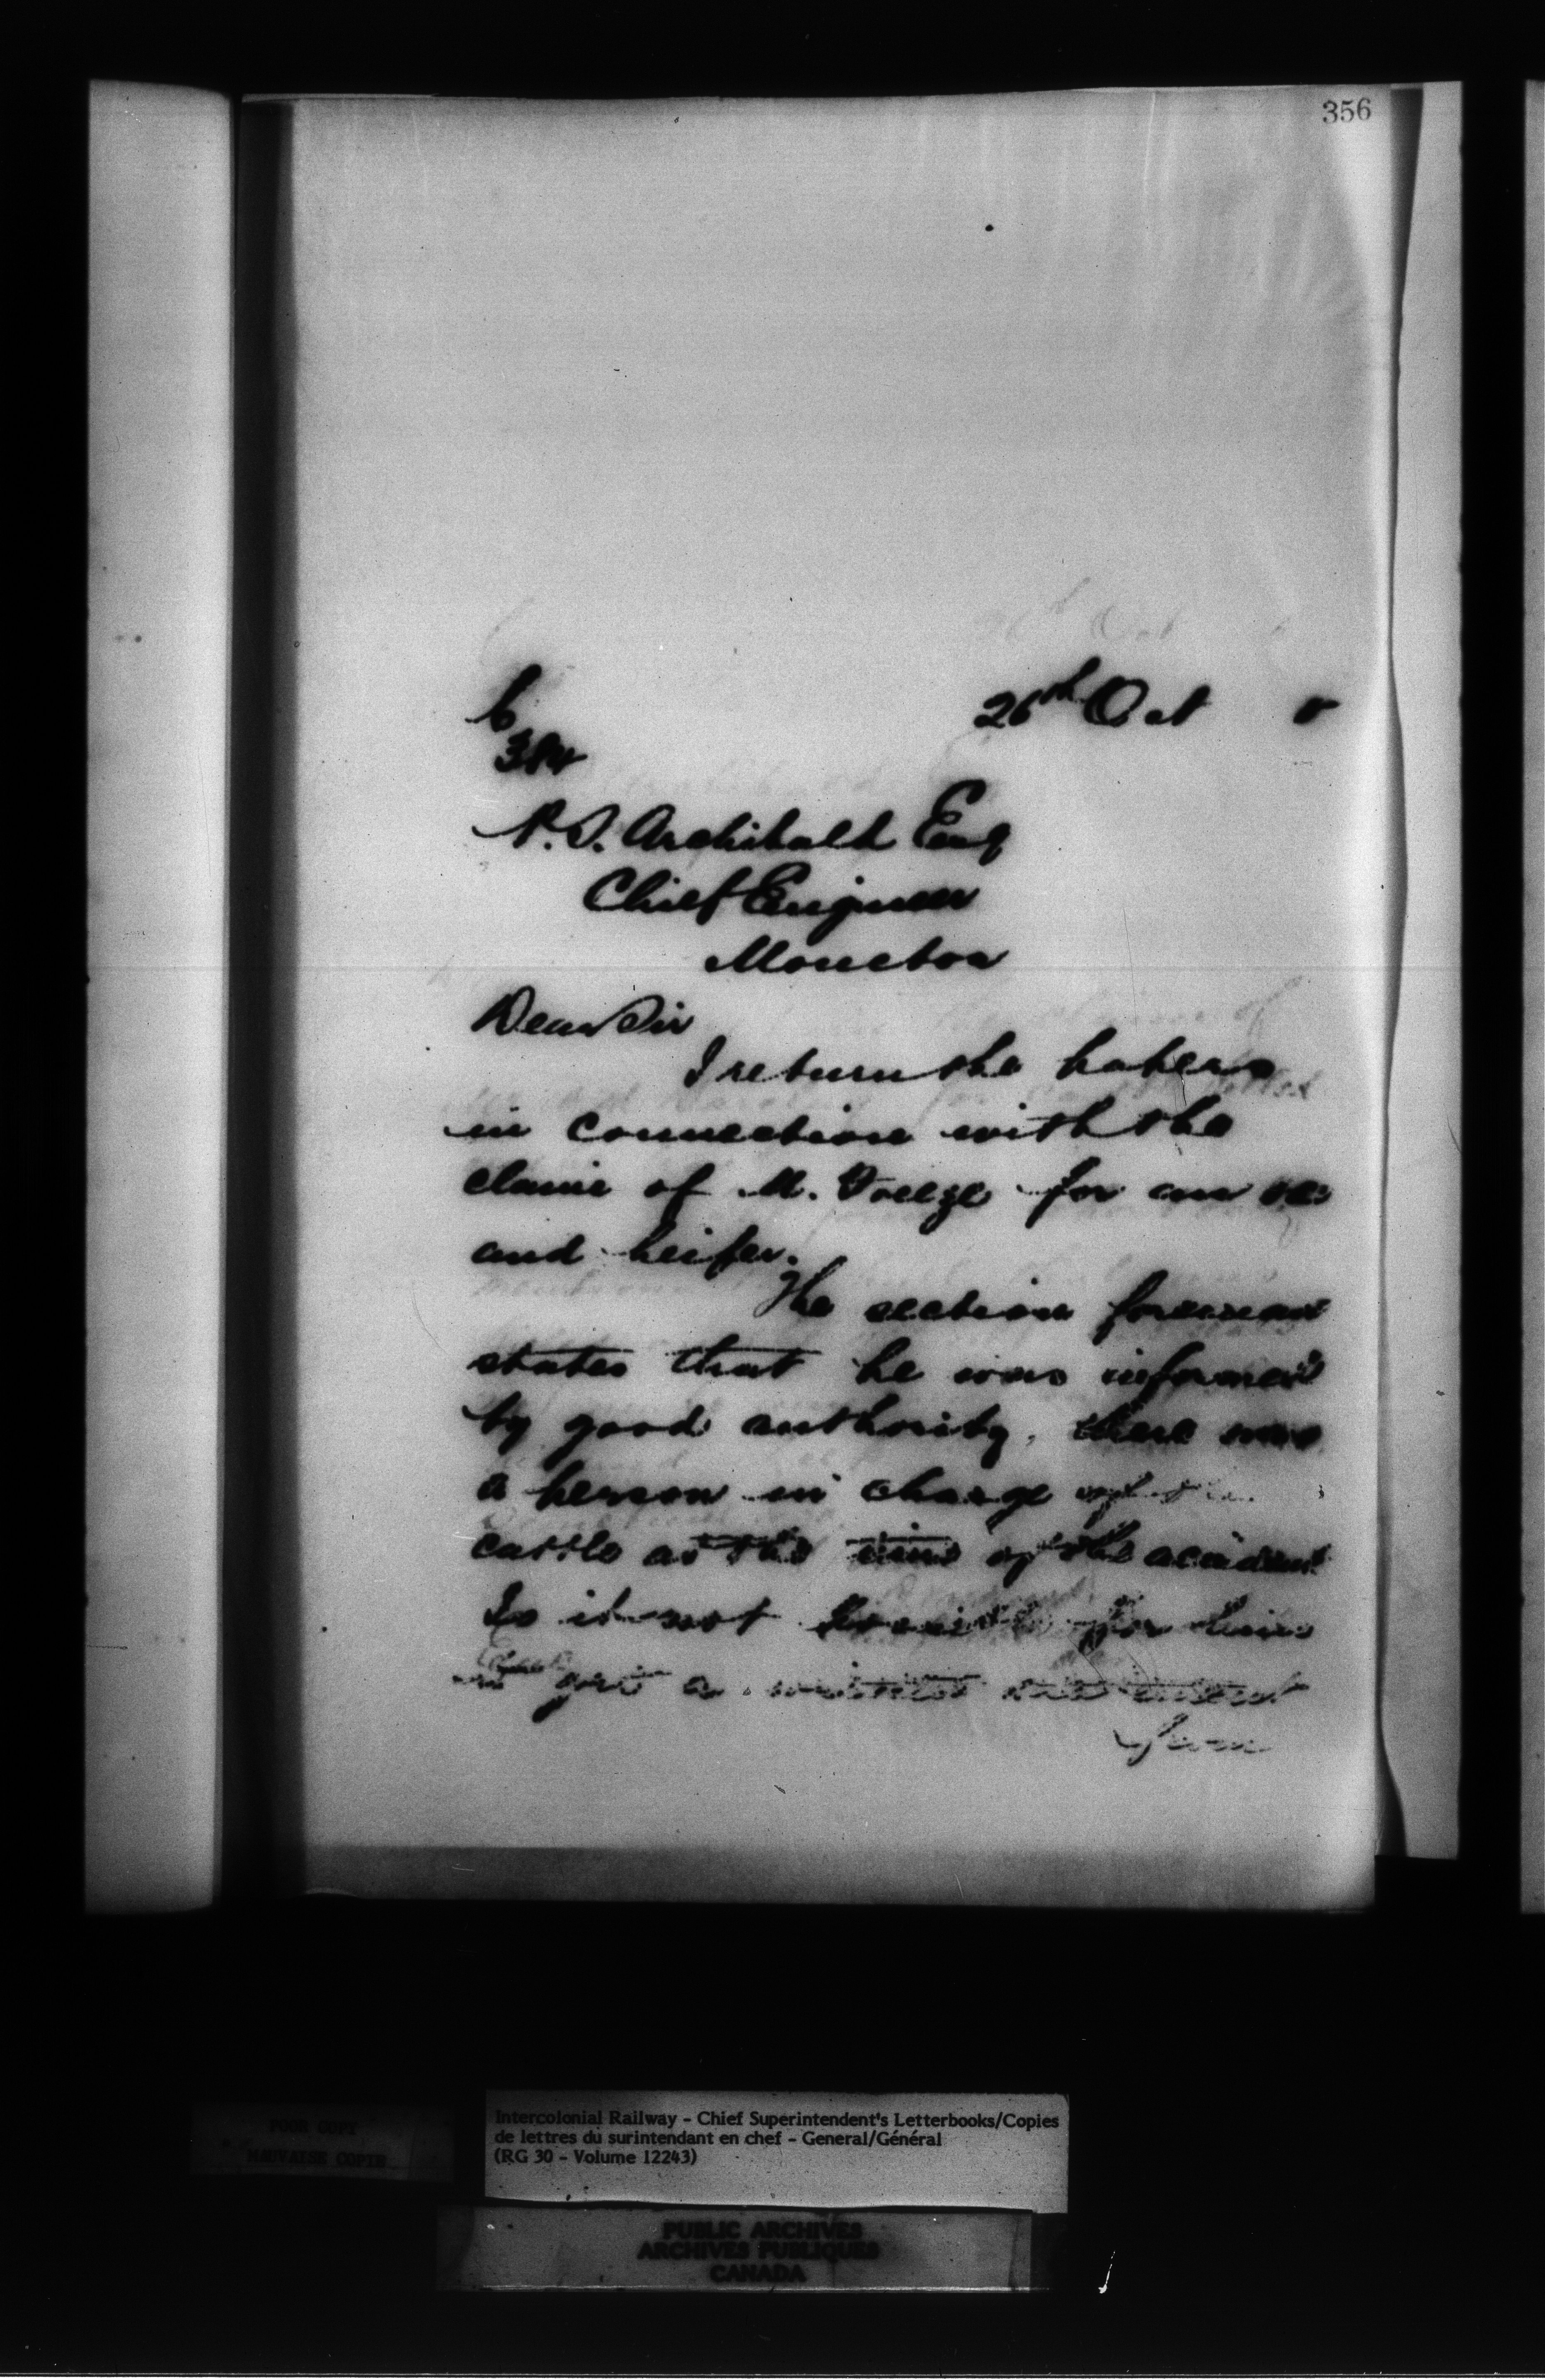 356
26th Oct
6
384
P. S. Archibald Esq
Chief Engineer
Moncton
Dear Sir
I return the papers
in connection with the
claim of M. Freeze for an ox
and heifer.
The section foreman
states that he was informed
by good authority, there was
a person in charge of the
cattle at the time of the accident
Is it not possible for him
to get a written statement
from
POOR COPY
MAUVAISE COPIE
Intercolonial Railway - Chief Superintendent's Letterbooks/Copies
de lettres du surintendant en chef - General/Général
(RG 30 - Volume 12243)
PUBLIC ARCHIVES
ARCHIVES PUBLIQUES
CANADA